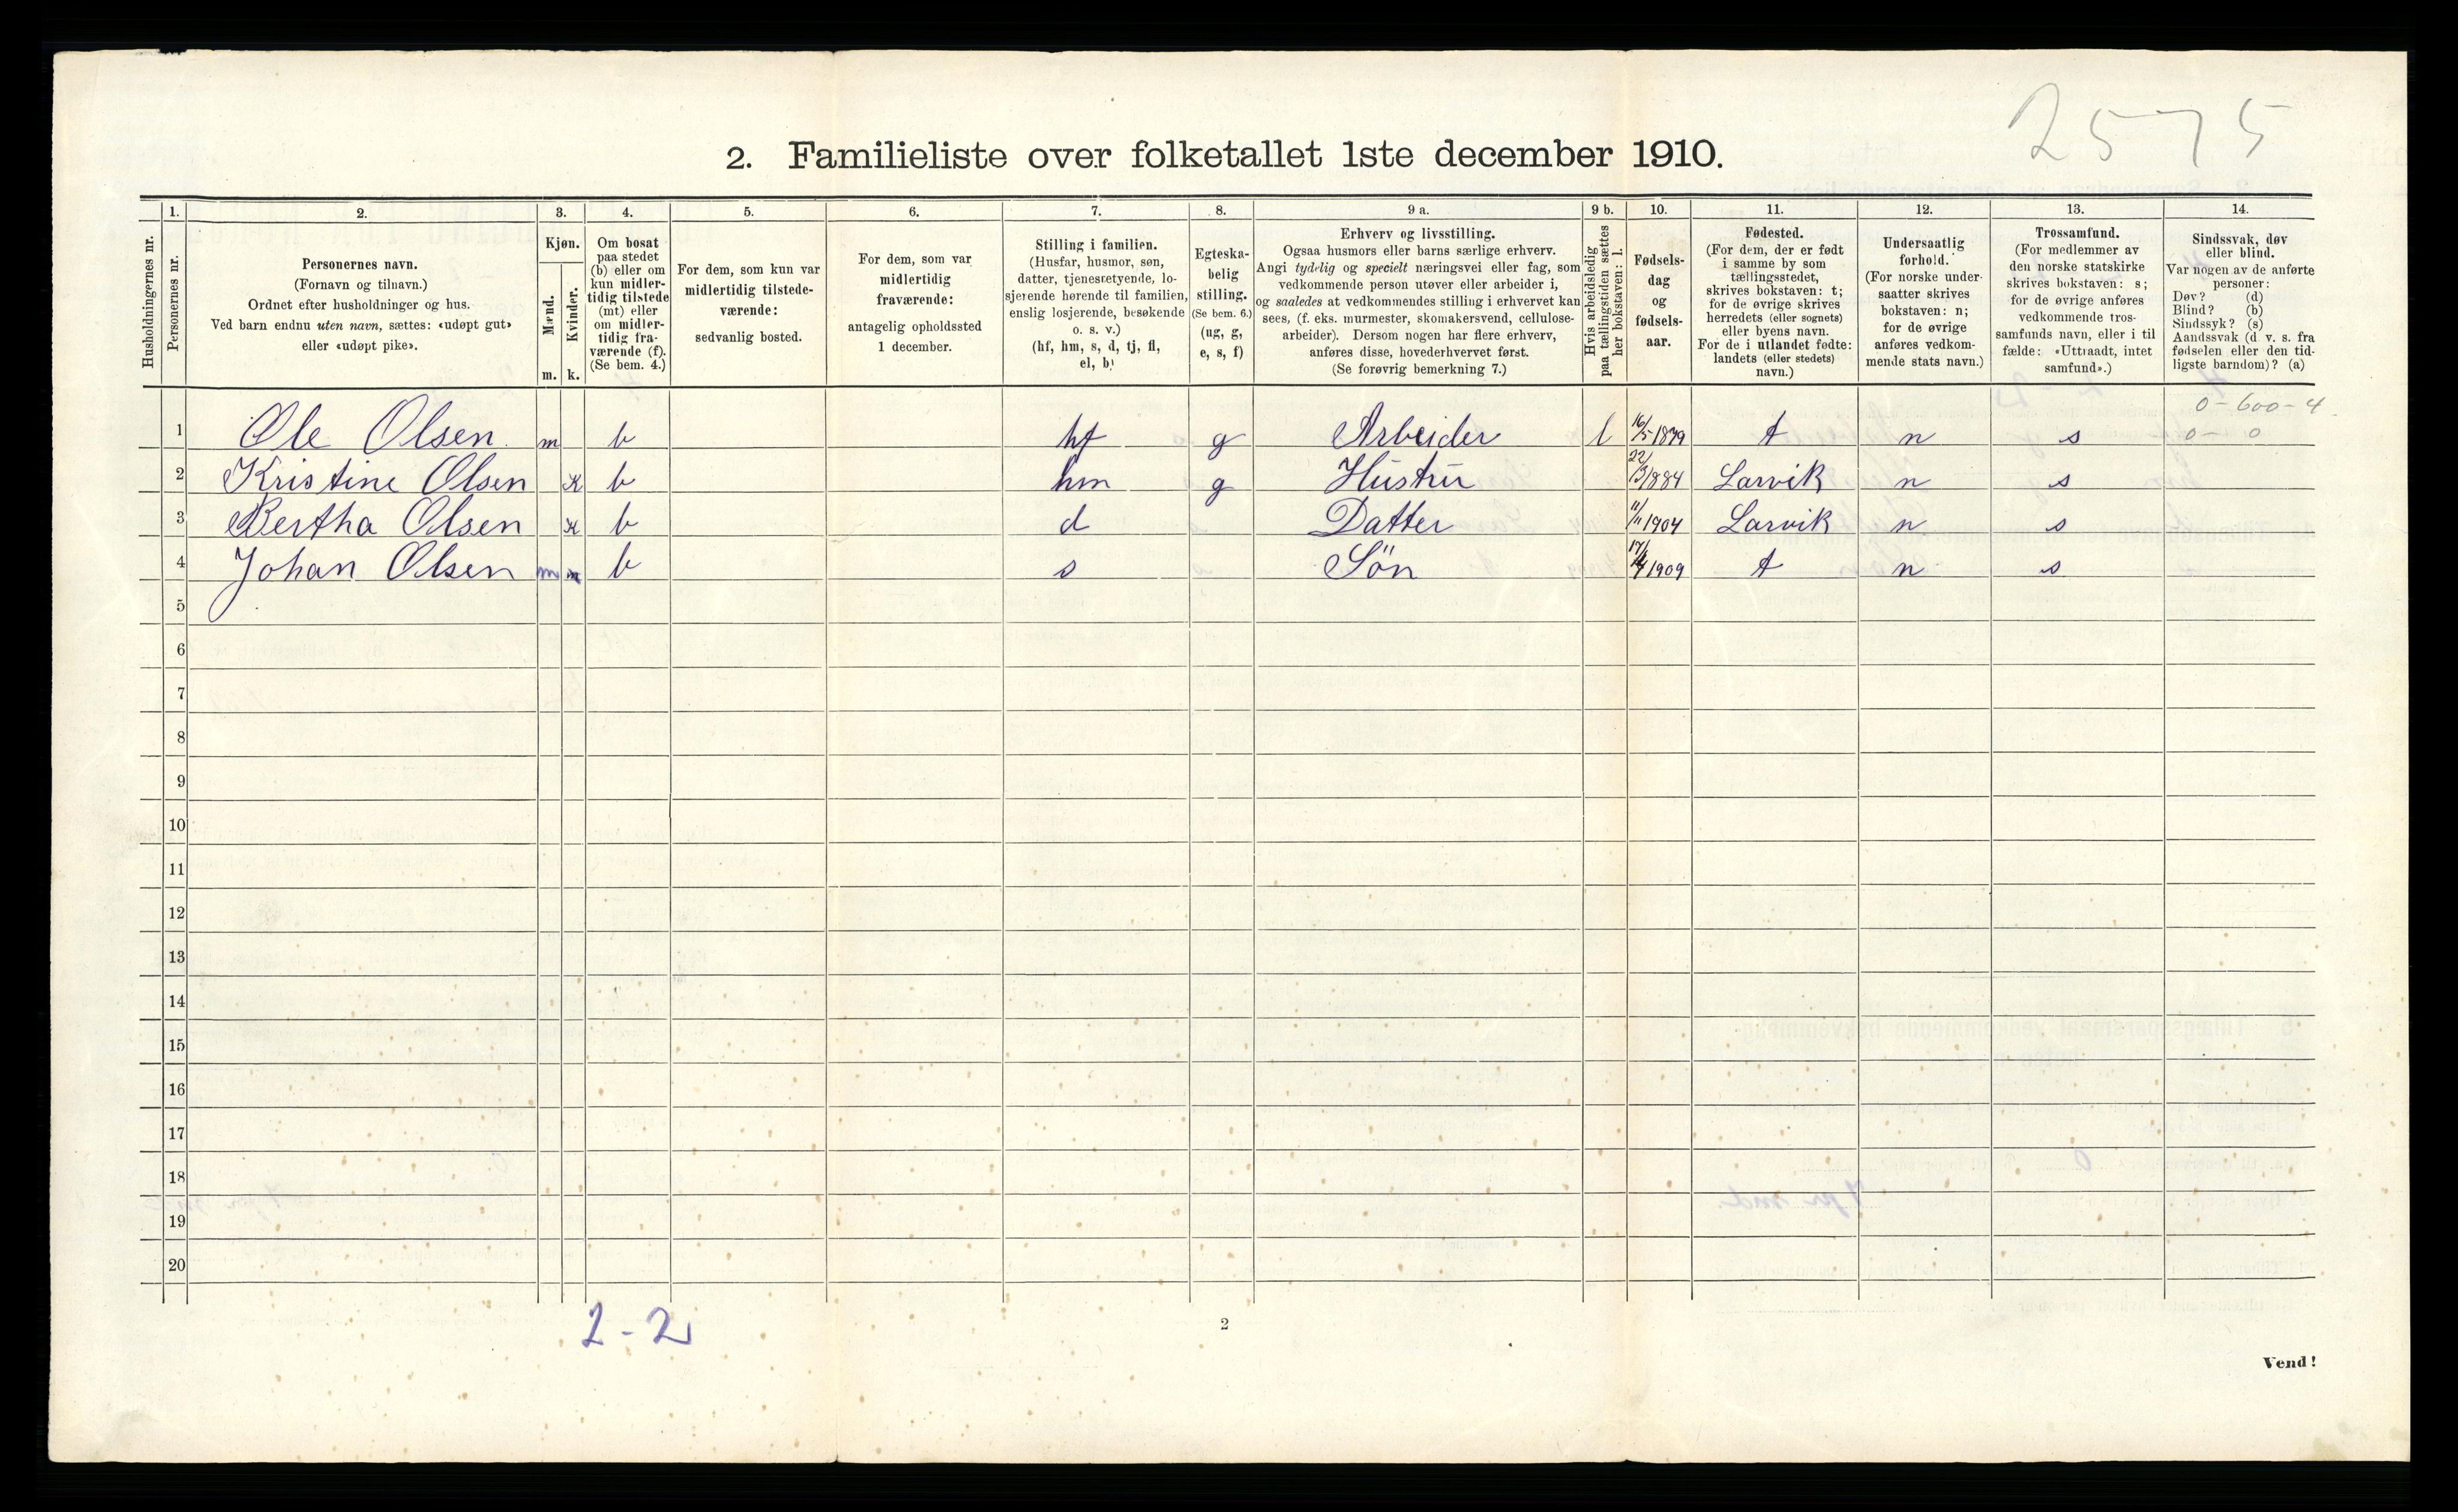 2575
2. Familieliste over folketallet 1ste december 1910.
1. 2. 3. 4. 5. 6. 7. 8. 9 a. 9 b. 10. 11. 12. 13. 14.
Husholdningernes nr.
Personernes nr.
Personernes navn.
(Fornavn og tilnavn.)
Ordnet efter husholdninger og hus.
Ved barn endnu uten navn, sættes: «udøpt gut»
eller «udøpt pike».
Kjøn.
Mænd.
Kvinder.
m. k.
Om bosat
paa stedet
(b) eller om
kun midler-
tidig tilstede
(mt) eller
om midler-
tidig fra-
værende (f).
(Se bem. 4.)
For dem, som kun var
midlertidig tilstede-
værende:
sedvanlig bosted.
For dem, som var
midlertidig
fraværende:
antagelig opholdssted
1 december.
Stilling i familien.
(Husfar, husmor, søn,
datter, tjenestetyende, lo-
sjerende hørende til familien,
enslig losjerende, besøkende
o. s. v.)
(hf, hm, s, d, tj, fl,
el, b)
Egteska-
belig
stilling.
(Se bem. 6.)
(ug, g,
e, s, f)
Erhverv og livsstilling.
Ogsaa husmors eller barns særlige erhverv.
Angi tydelig og specielt næringsvei eller fag, som
vedkommende person utøver eller arbeider i,
og saaledes at vedkommendes stilling i erhvervet kan
sees, (f. eks. murmester, skomakersvend, cellulose-
arbeider). Dersom nogen har flere erhverv,
anføres disse, hovederhvervet først.
(Se forøvrig bemerkning 7.)
Hvis arbeidsledig
paa tællingstiden sættes
her bokstaven: l.
Fødsels-
dag
og
fødsels-
aar.
Fødested.
(For dem, der er født
i samme by som
tællingsstedet,
skrives bokstaven: t;
for de øvrige skrives
herredets (eller sognets)
eller byens navn.
For de i utlandet fødte:
landets (eller stedets)
navn.)
Undersaatlig
forhold.
(For norske under-
saatter skrives
bokstaven: n;
for de øvrige
anføres vedkom-
mende stats navn.)
Trossamfund.
(For medlemmer av
den norske statskirke
skrives bokstaven: s;
for de øvrige anføres
vedkommende tros-
samfunds navn, eller i til
fælde: «Uttraadt, intet
samfund».)
Sindssvak, døv
eller blind.
Var nogen av de anførte
personer:
Døv? (d)
Blind? (b)
Sindssyk? (s)
Aandssvak (d. v. s. fra
fødselen eller den tid-
ligste barndom)? (a)
0-600-4
0- 0
1 Ole Olsen m b hf g Arbeider l 16/5 1879 t n s
2 Kristine Olsen K b hm g Hustru 22/3 1884 Larvik n s
3 Bertha Olsen K b d Datter 11/11 1904 Larvik n s
4 Johan Olsen m b s Søn 1909 t n s
5
6
7
8
9
10
11
12
13
14
15
16
17
18
19
20
2-2
2
Vend!